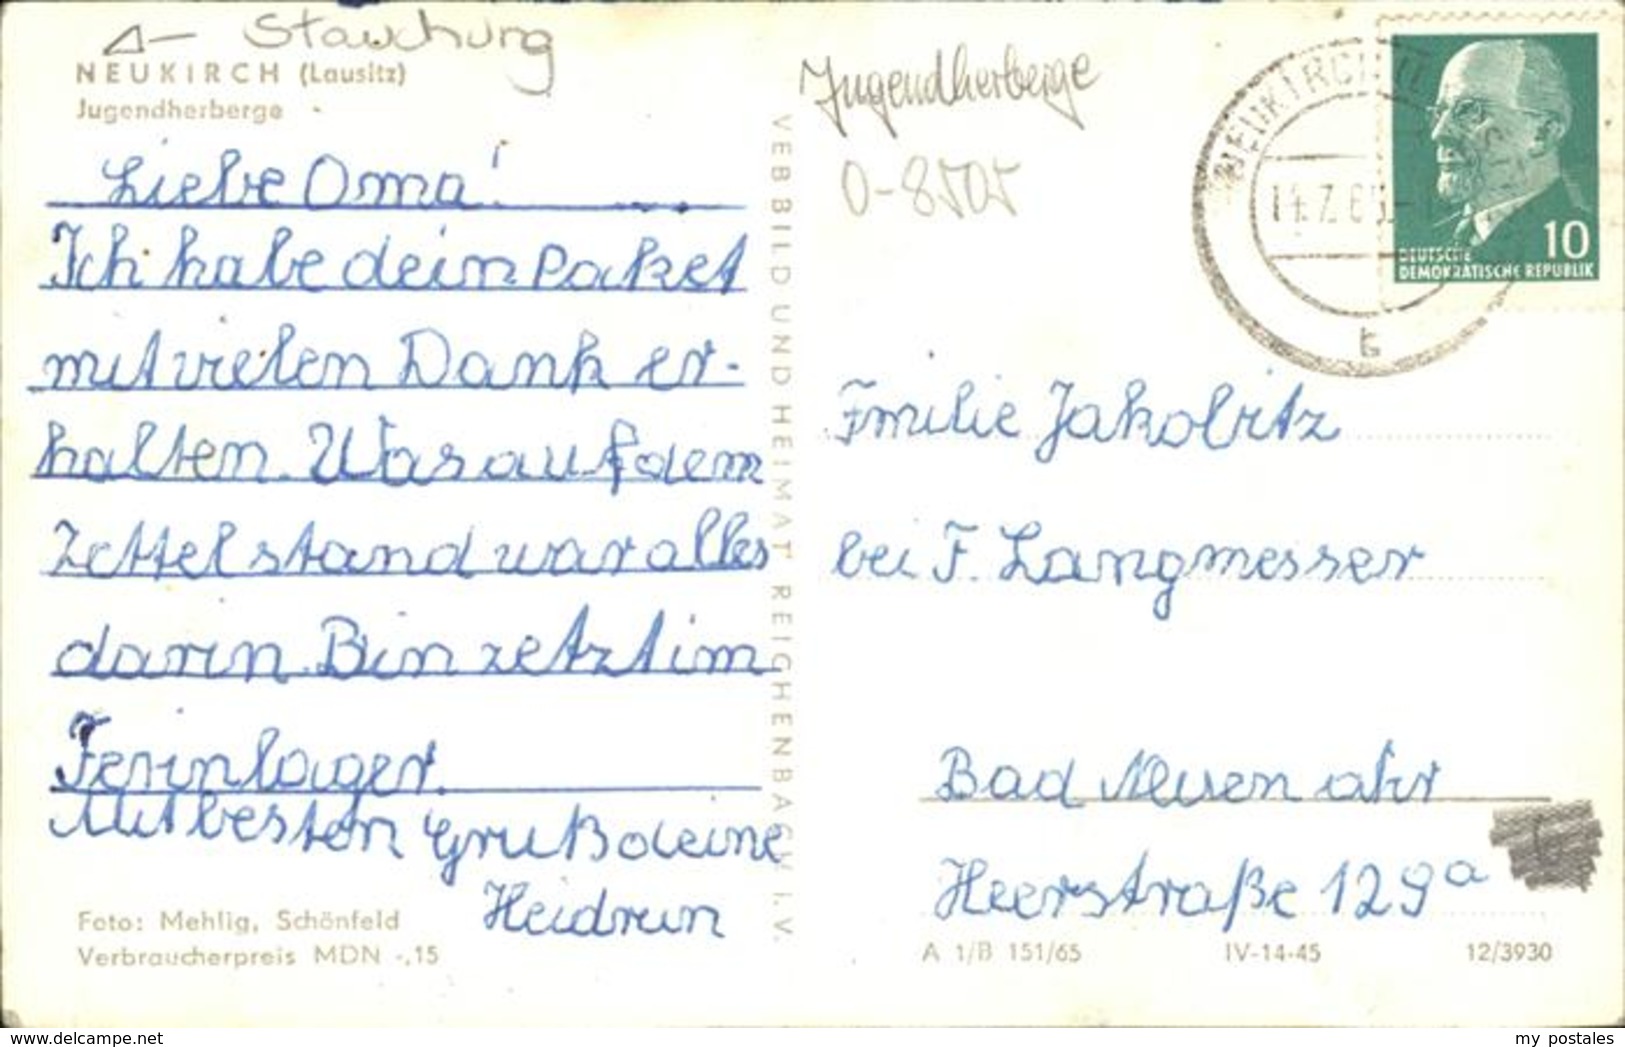 Stauchung
NEUKIRCH (Lausitz)
Jugendherberge
Liebe Oma!
Ich habe dein Paket
mit vielen Dank er-
halten. Was auf dem
Zettel stand war alles
darin. Bin zetzt im
Ferinlager.
Mit besten Gruß deine
Heidrun
Foto: Mehlig, Schönfeld
Verbraucherpreis MDN -,15
VEB BILD UND HEIMAT REICHENBACH I. V.
Jugendherberge
O-8505
NEUKIRCH
b
10
DEUTSCHE
DEMOKRATISCHE REPUBLIK
Fmilie Jakobitz
bei F. Langmesser
Bad Neuen ahr
Heerstraße 129a
A 1/B 151/65 IV-14-45 12/3930
www.delcampe.net
my postales